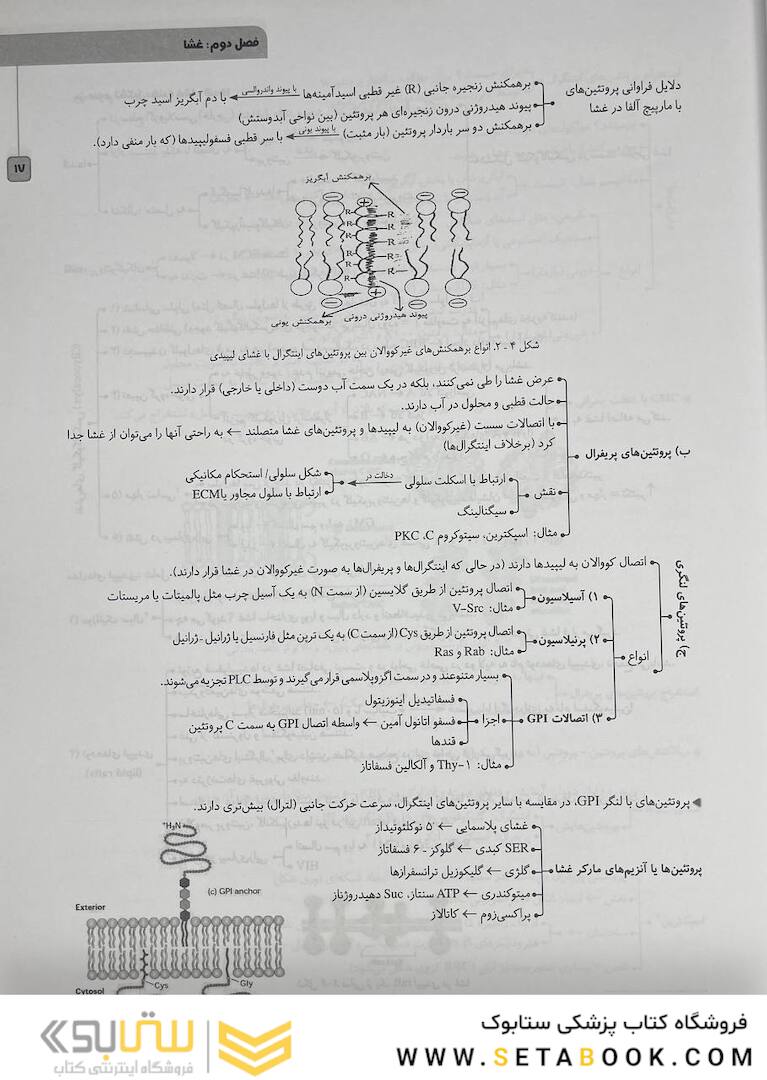 فصل دوم: غشا
۱۷
دلایل فراوانی پروتئین‌های
با مارپیچ آلفا در غشا
برهمکنش زنجیره جانبی (R) غیر قطبی اسیدآمینه‌ها با پیوند واندروالسی با دم آبگریز اسید چرب
پیوند هیدروژنی درون زنجیره‌ای هر پروتئین (بین نواحی آبدوستش)
برهمکنش دو سر باردار پروتئین (بار مثبت) با پیوند یونی با سر قطبی فسفولیپیدها (که بار منفی دارد).
برهمکنش آبگریز
R
R
R
R
R
R
R
R
R
پیوند هیدروژنی درونی
برهمکنش یونی
شکل ۴ - ۲. انواع برهمکنش‌های غیرکووالان بین پروتئین‌های اینتگرال با غشای لیپیدی
ب) پروتئین‌های پریفرال
عرض غشا را طی نمی‌کنند، بلکه در یک سمت آب دوست (داخلی یا خارجی) قرار دارند.
حالت قطبی و محلول در آب دارند.
با اتصالات سست (غیرکووالان) به لیپیدها و پروتئین‌های غشا متصلند ← به راحتی آنها را می‌توان از غشا جدا
کرد (برخلاف اینتگرال‌ها)
نقش
ارتباط با اسکلت سلولی دخالت در
شکل سلولی/ استحکام مکانیکی
ارتباط با سلول مجاور یا ECM
سیگنالینگ
مثال: اسپکترین، سیتوکروم C، PKC
ج) پروتئین‌های لنگری
اتصال کووالان به لیپیدها دارند (در حالی که اینتگرال‌ها و پریفرال‌ها به صورت غیرکووالان در غشا قرار دارند).
انواع
۱) آسیلاسیون
اتصال پروتئین از طریق گلایسین (از سمت N) به یک آسیل چرب مثل پالمیتات یا مریستات
مثال: V-Src
۲) پرنیلاسیون
اتصال پروتئین از طریق Cys (از سمت C) به یک ترپن مثل فارنسیل یا ژرانیل - ژرانیل
مثال: Rab و Ras
۳) اتصالات GPI
بسیار متنوعند و در سمت اگزوپلاسمی قرار می‌گیرند و توسط PLC تجزیه می‌شوند.
اجزا
فسفاتیدیل اینوزیتول
فسفو اتانول آمین ← واسطه اتصال GPI به سمت C پروتئین
قندها
مثال: Thy-1 و آلکالین فسفاتاز
◀ پروتئین‌های با لنگر GPI، در مقایسه با سایر پروتئین‌های اینتگرال، سرعت حرکت جانبی (لترال) بیش‌تری دارند.
پروتئین‌ها یا آنزیم‌های مارکر غشا
غشای پلاسمایی ← ۵ نوکلئوتیداز
SER کبدی ← گلوکز - ۶ فسفاتاز
گلژی ← گلیکوزیل ترانسفرازها
میتوکندری ← ATP سنتاز، Suc دهیدروژناز
پراکسی‌زوم ← کاتالاز
⁺H₃N
(c) GPI anchor
Exterior
Cys
Gly
Cytosol
فروشگاه کتاب پزشکی ستابوک
WWW.SETABOOK.COM
ستابوک
فروشگاه اینترنتی کتاب